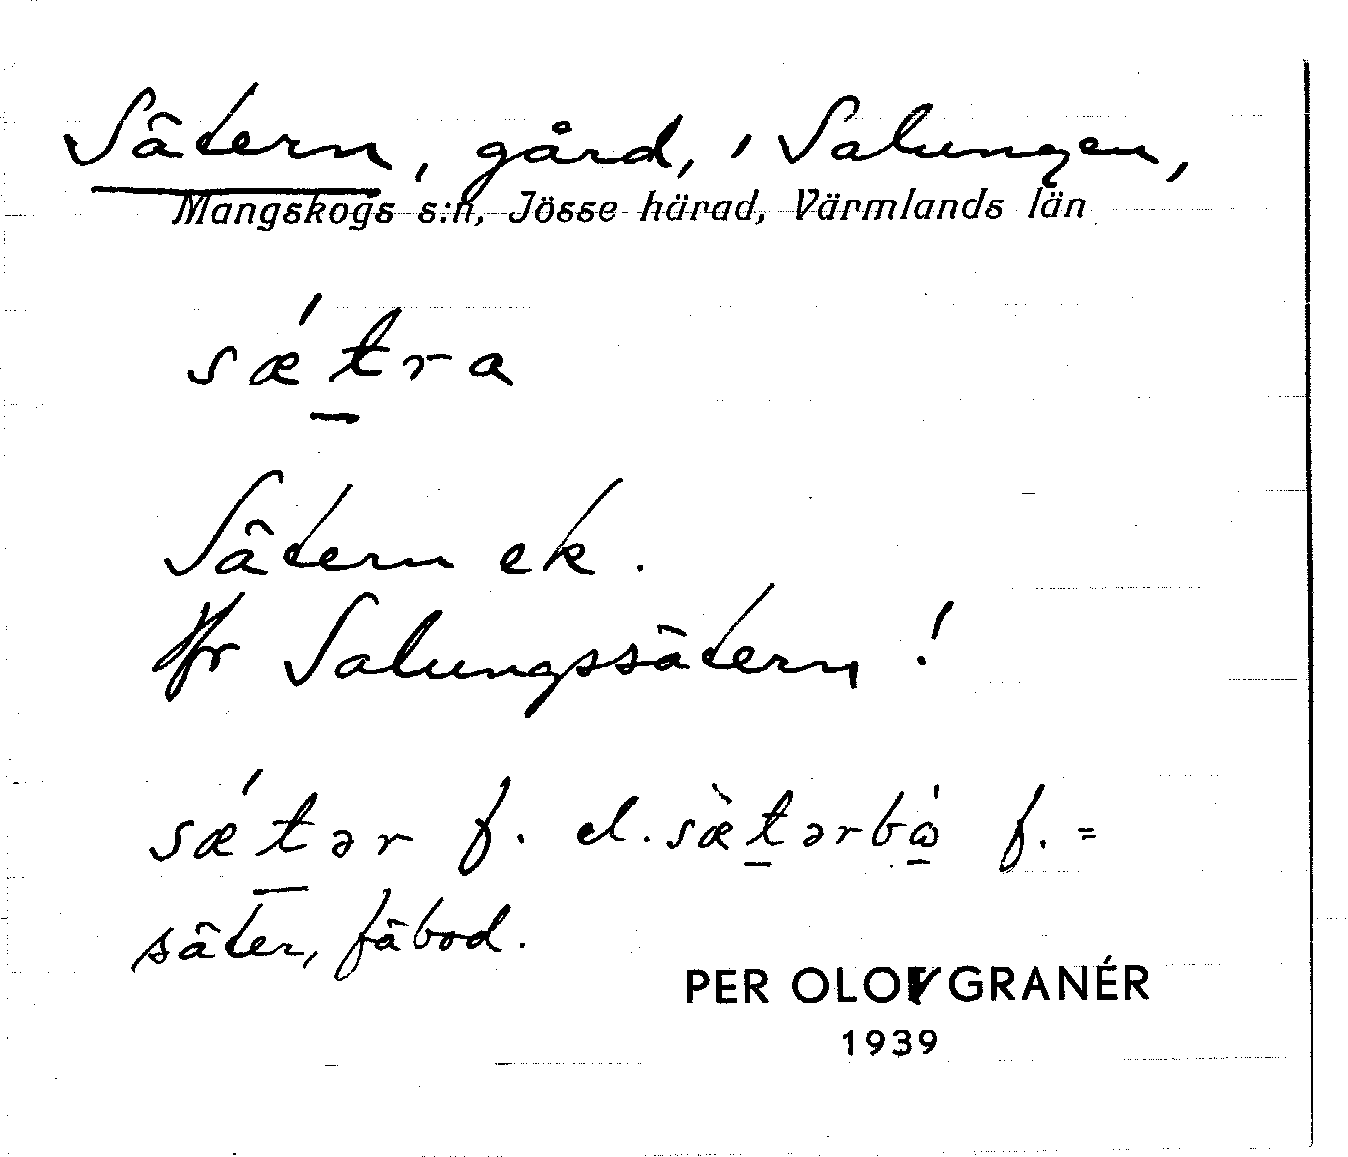 Sätern, gård, i Salungen,
Mangskogs s:n, Jösse härad, Värmlands län
sæ´tra
Sätern ek.
Hfr Salungssätern!
sæ´tər f. el. sæ`tərbὼ f. =
säter, fäbod.
PER OLOV GRANÉR
1939